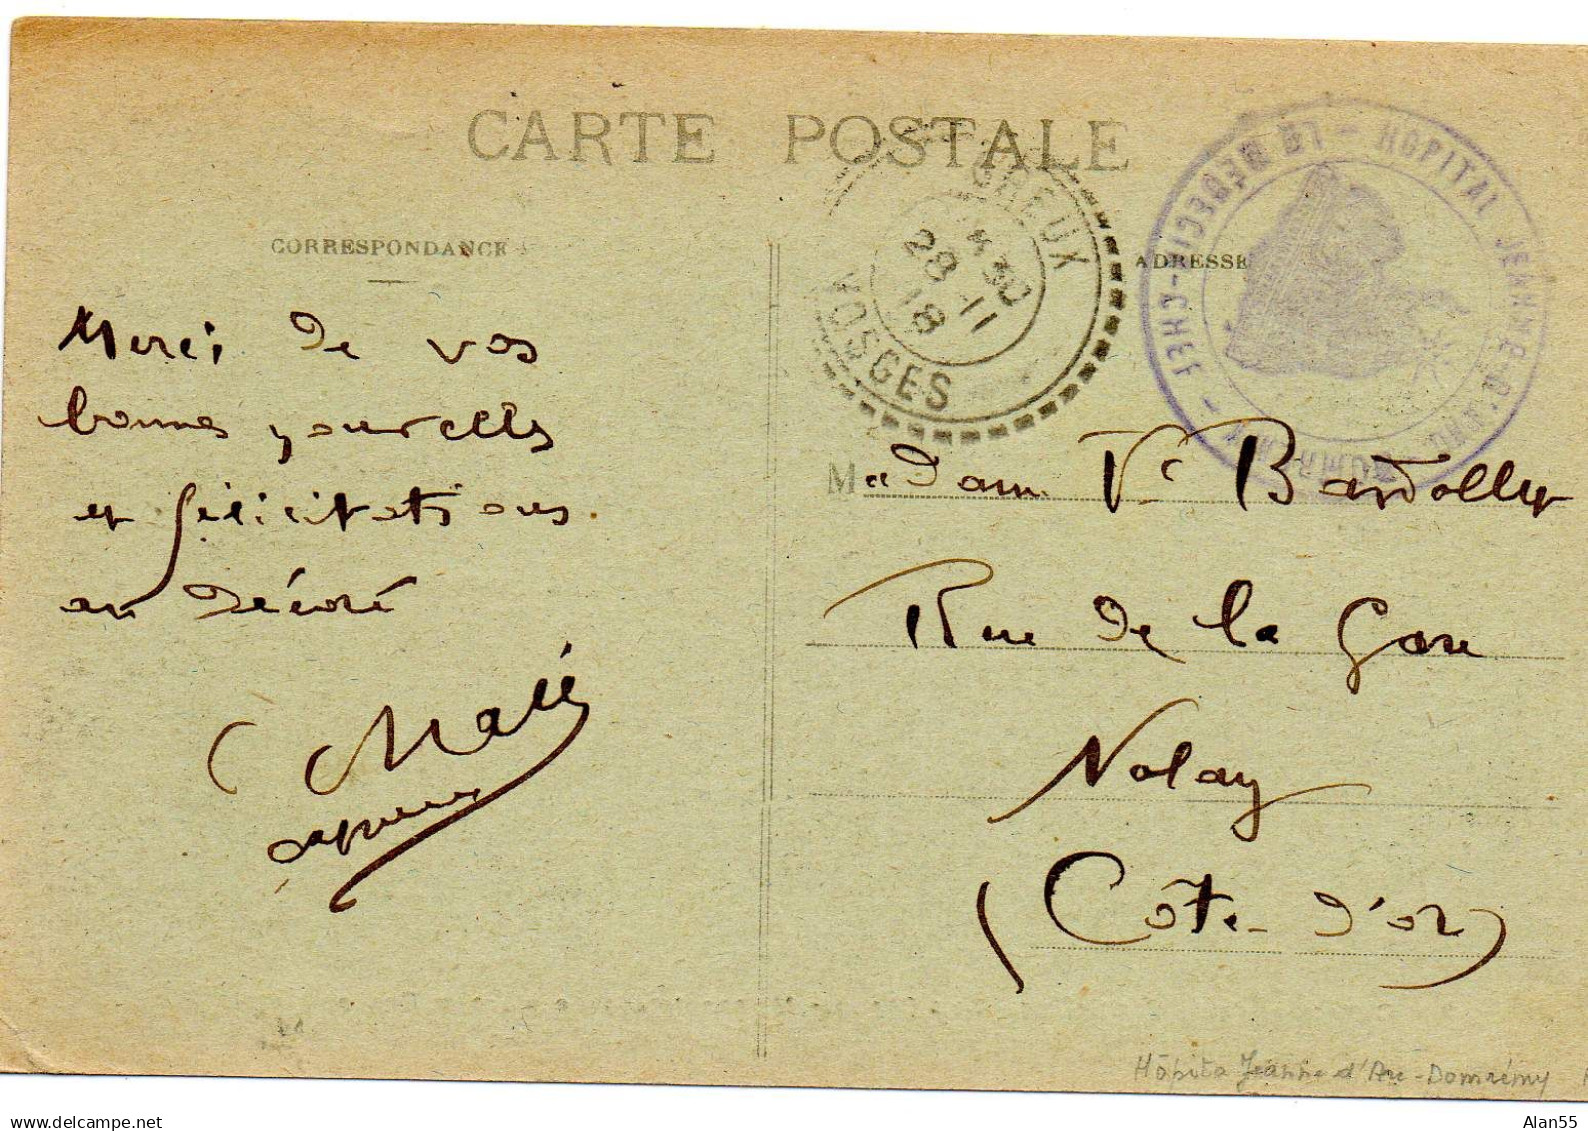 CARTE POSTALE
CORRESPONDANCE
ADRESSE
GREUX
4 30
28 - 11
18
VOSGES
HOPITAL JEANNE D'ARC - DOMREMY - LE MEDECIN-CHEF -
Merci de vos
bonnes nouvelles
et félicitations
au décoré
Madame Vve Bardollet
Rue de la Gare
Nolay
(Côte-d'or)
Hôpita Jeanne d'Arc-Domrémy
Alan55